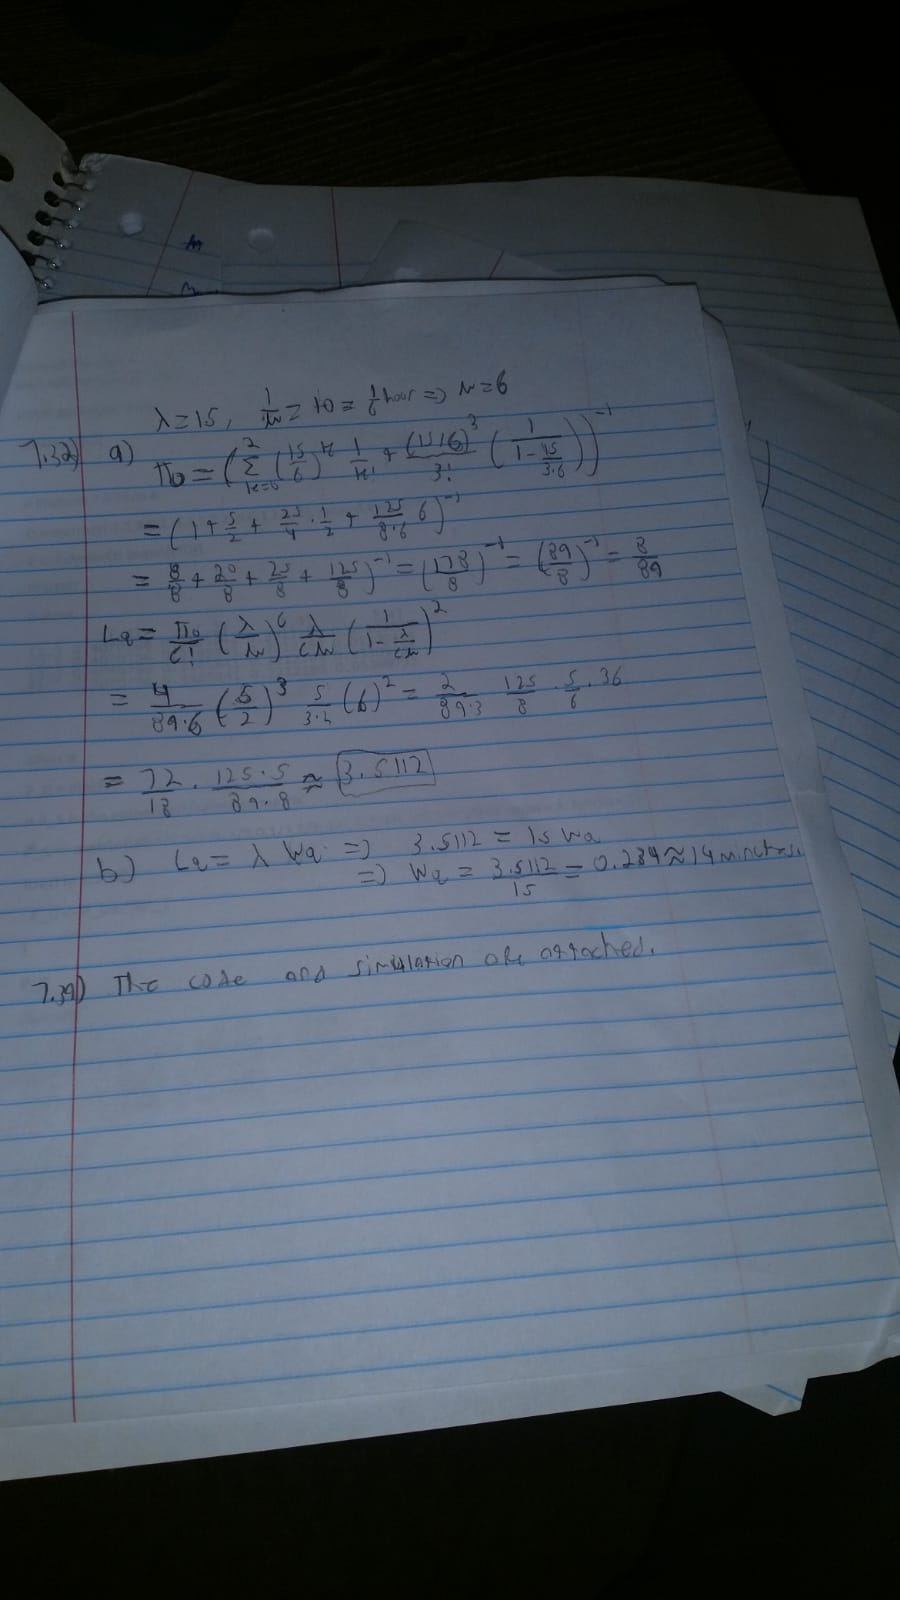 λ=15, 1/μ = 10 = 1/6 hour => μ=6
7.32) a) π₀ = (Σ_{k=0}^{2} (15/6)^k 1/k! + (15/6)^3/3! (1/(1-15/(3·6))))^{-1}
= (1 + 5/2 + 25/4 · 1/2 + 125/(8·6) 6)^{-1}
= 8/8 + 20/8 + 25/8 + 125/8)^{-1} = (178/8)^{-1} = (89/8)^{-1} = 8/89
Lq = π₀/c! (λ/μ)^c λ/(cμ) (1/(1-λ/(cμ)))^2
= 4/(89·6) (5/2)^3 5/(3·2) (6)^2 = 2/(89·3) 125/8 · 5/6 · 36
= 72/18 · (125·5)/(89·8) ≈ 3.5112
b) Lq = λ Wq => 3.5112 = 15 Wq
=> Wq = 3.5112/15 = 0.234 ≈ 14 minutes.
7.39) The code and simulation are attached.